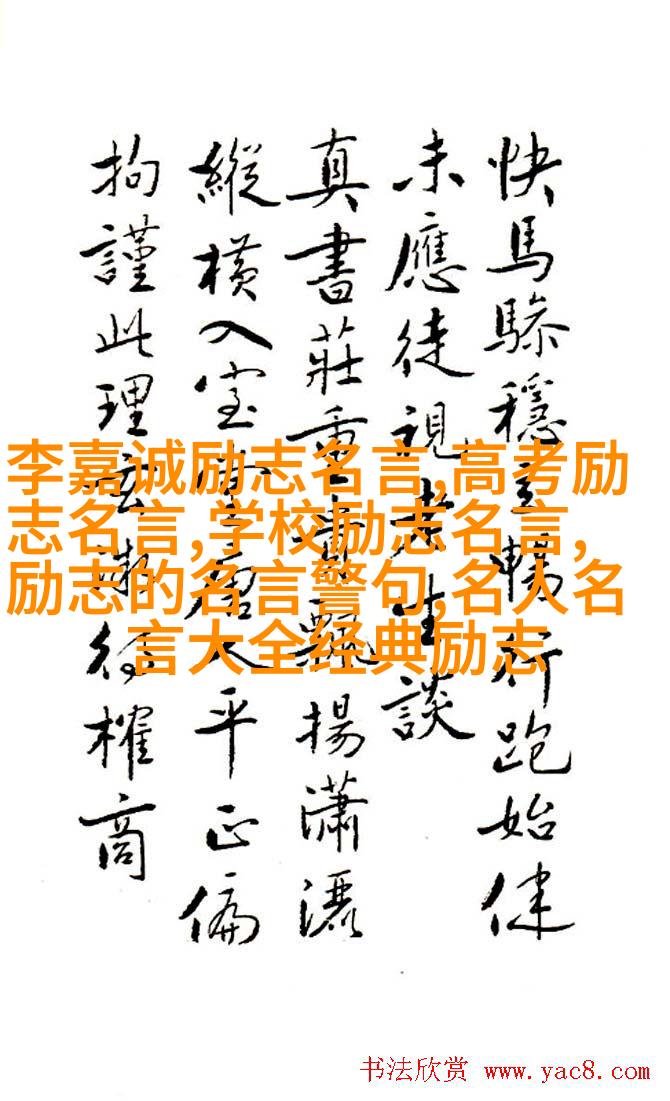 快馬驂穩暢行跑始健
未應徒視老生談
真書莊重飄揚瀟灑
縱橫入室唐人平正偏
拘謹此理榷商
李嘉诚励志名言,高考励
志名言,学校励志名言,
励志的名言警句,名人名
言大全经典励志
书法欣赏 www.yac8.com